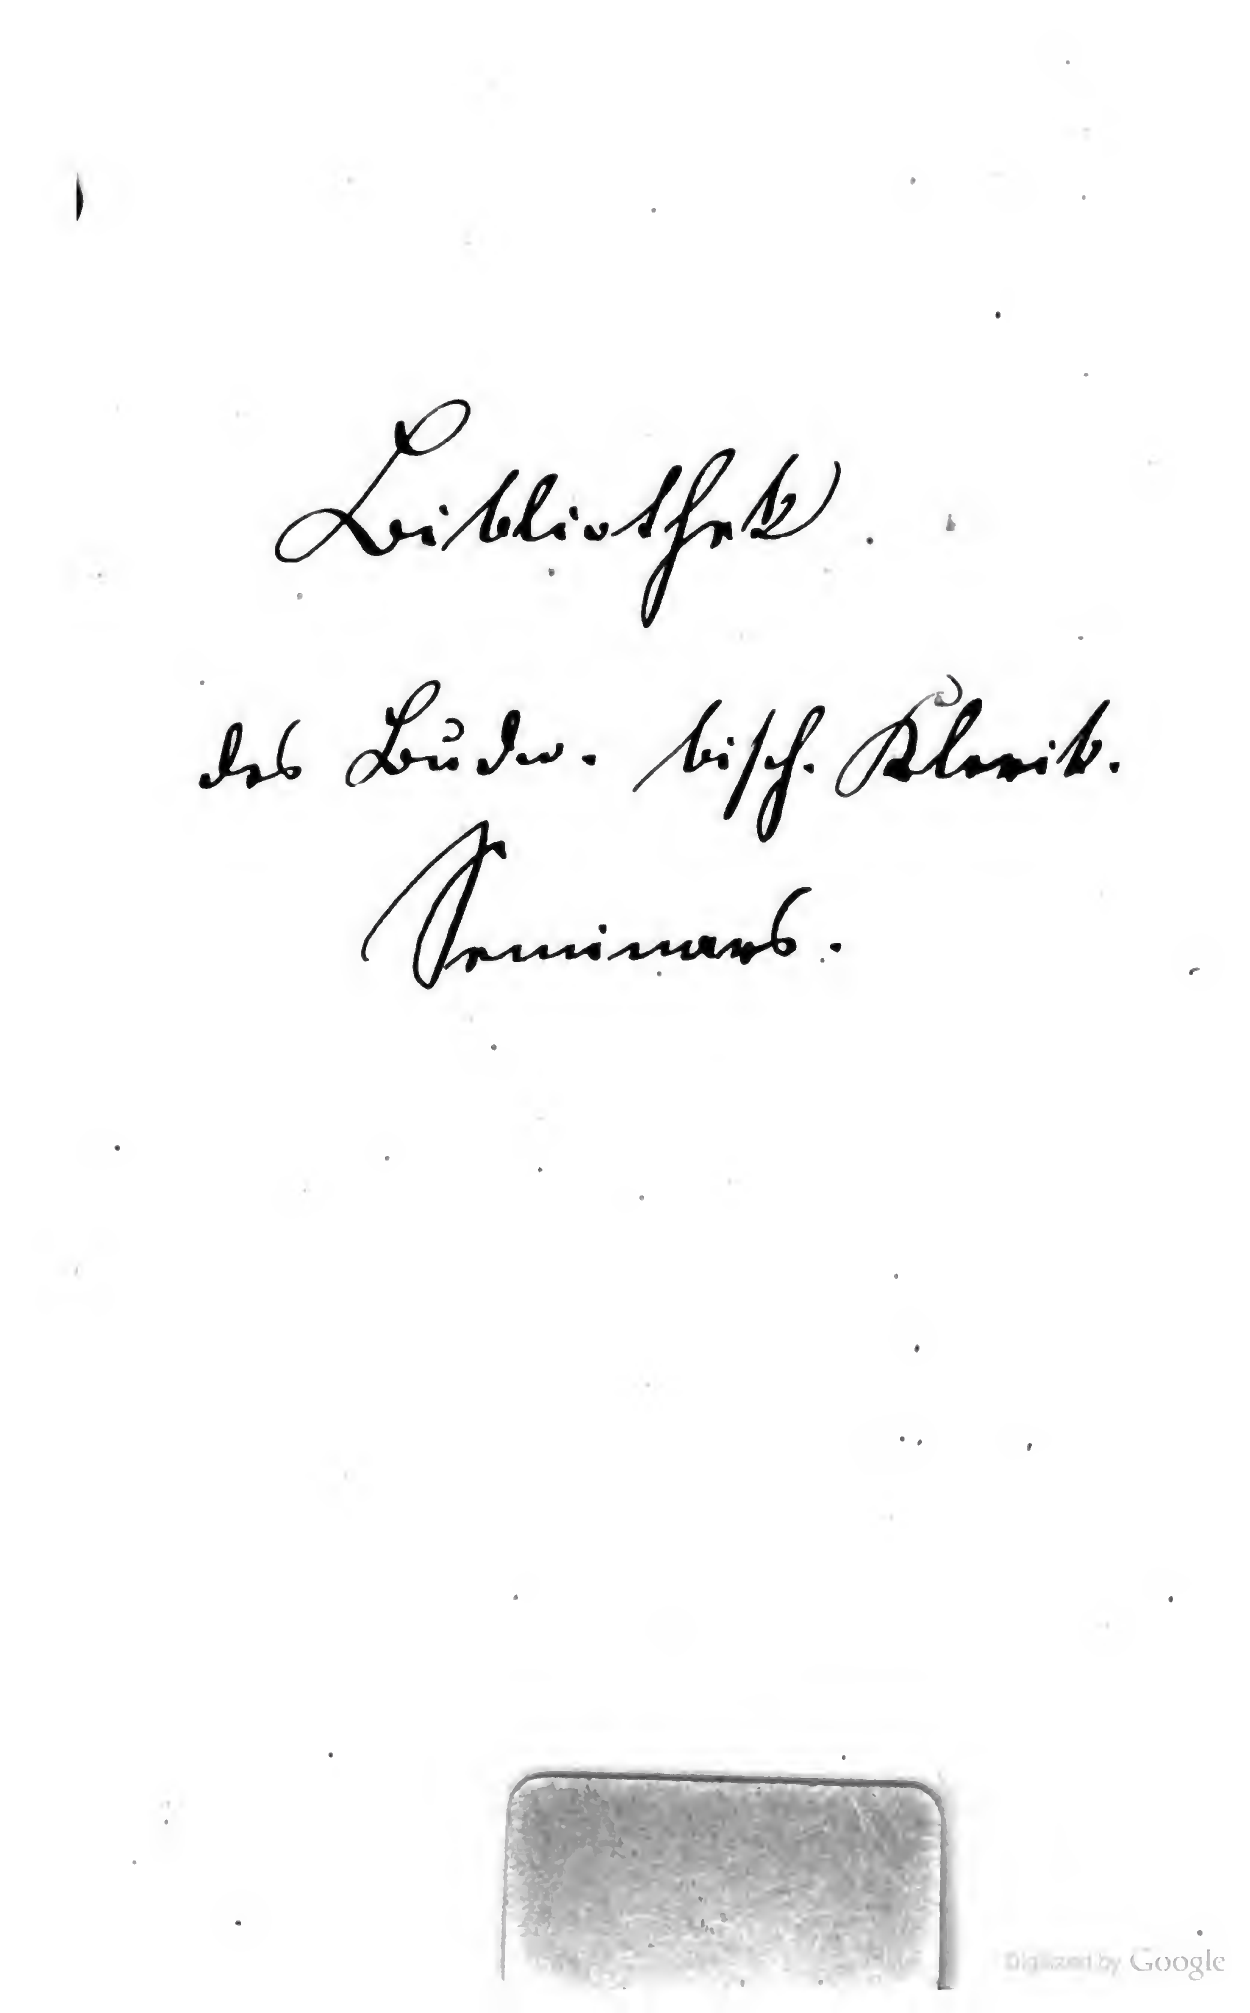 Bibliothek
des Budw. bisch. Klerik.
Seminars.
Digitized by Google